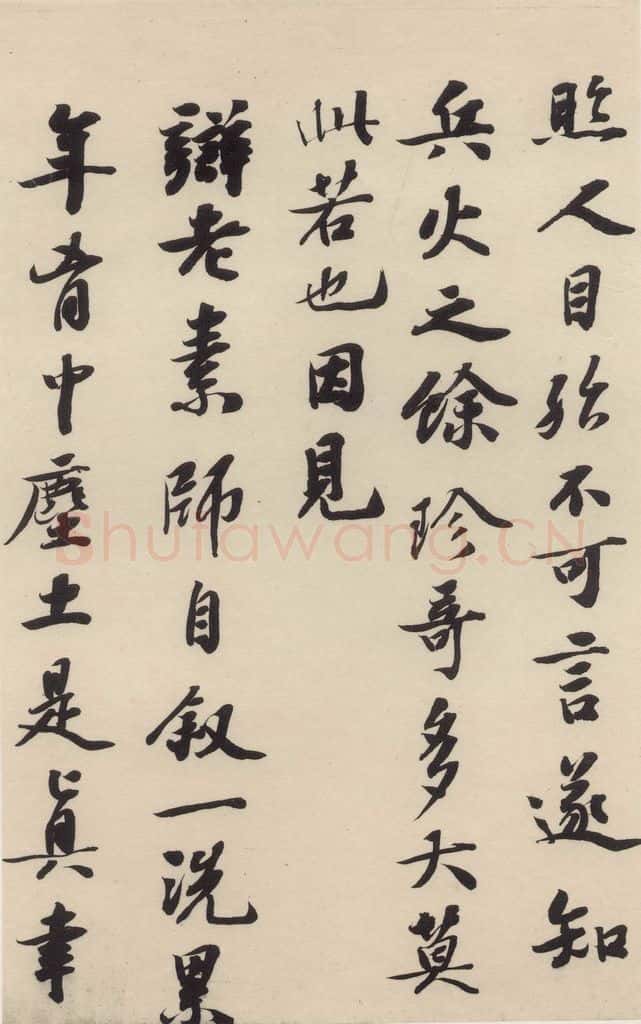 照人目殆不可言遂知
兵火之餘珍奇多大莫
此若也因見
辯老素師自叙一洗累
年胷中塵土是真幸
Shufawang.CN